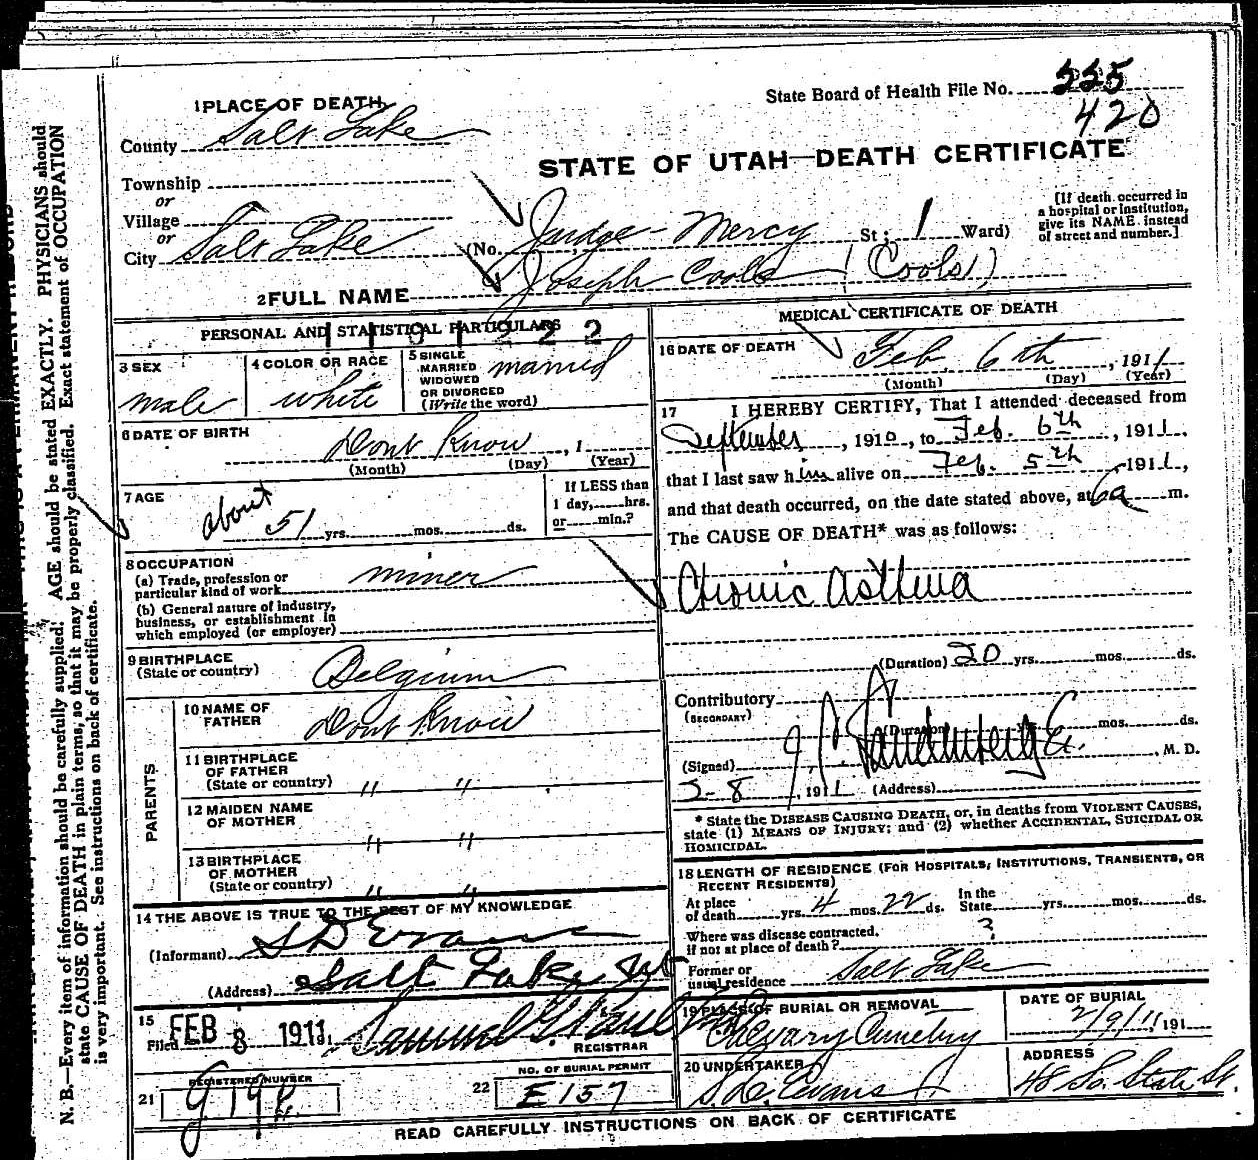 State Board of Health File No. 225
420
1 PLACE OF DEATH
County Salt Lake
STATE OF UTAH—DEATH CERTIFICATE
Township
or
Village
or
City Salt Lake
(No. Judge Mercy St; 1 Ward)
[If death occurred in
a hospital or institution,
give its NAME instead
of street and number.]
2 FULL NAME Joseph Cools (Cools)
PERSONAL AND STATISTICAL PARTICULARS
3 SEX
male
4 COLOR OR RACE
white
5 SINGLE
MARRIED
WIDOWED
OR DIVORCED
(Write the word)
married
6 DATE OF BIRTH
Dont Know, 1
(Month) (Day) (Year)
7 AGE
about 51 yrs. mos. ds.
If LESS than
1 day, hrs.
or min.?
8 OCCUPATION
(a) Trade, profession or
particular kind of work miner
(b) General nature of industry,
business, or establishment in
which employed (or employer)
9 BIRTHPLACE
(State or country) Belgium
PARENTS
10 NAME OF
FATHER Dont Know
11 BIRTHPLACE
OF FATHER
(State or country) " "
12 MAIDEN NAME
OF MOTHER " "
13 BIRTHPLACE
OF MOTHER
(State or country) " "
14 THE ABOVE IS TRUE TO THE BEST OF MY KNOWLEDGE
(Informant) S D Evans
(Address) Salt Lake, Ut
15
Filed FEB 8 1911 191
Samuel G. Paul
REGISTRAR
REGISTERED NUMBER
21
NO. OF BURIAL PERMIT
22 E157
MEDICAL CERTIFICATE OF DEATH
16 DATE OF DEATH
Feb. 6th, 1911
(Month) (Day) (Year)
17 I HEREBY CERTIFY, That I attended deceased from
September, 1910, to Feb. 6th, 1911,
that I last saw him alive on Feb. 5th 1911,
and that death occurred, on the date stated above, at 6a m.
The CAUSE OF DEATH* was as follows:
Chronic Asthma
(Duration) 20 yrs. mos. ds.
Contributory
(SECONDARY)
(Duration) yrs. mos. ds.
(Signed) M. D.
2-8, 1911 (Address)
* State the DISEASE CAUSING DEATH, or, in deaths from VIOLENT CAUSES,
state (1) MEANS OF INJURY; and (2) whether ACCIDENTAL, SUICIDAL OR
HOMICIDAL.
18 LENGTH OF RESIDENCE (FOR HOSPITALS, INSTITUTIONS, TRANSIENTS, OR
RECENT RESIDENTS)
At place
of death yrs. 4 mos. 22 ds.
In the
State yrs. mos. ds.
Where was disease contracted,
if not at place of death? ?
Former or
usual residence Salt Lake
19 PLACE OF BURIAL OR REMOVAL
Calvary Cemetery
DATE OF BURIAL
2/9/11 191
20 UNDERTAKER
S. D. Evans
ADDRESS
48 So. State St.
READ CAREFULLY INSTRUCTIONS ON BACK OF CERTIFICATE
N. B.—Every item of information should be carefully supplied. AGE should be stated EXACTLY. PHYSICIANS should
state CAUSE OF DEATH in plain terms, so that it may be properly classified. Exact statement of OCCUPATION
is very important. See instructions on back of certificate.